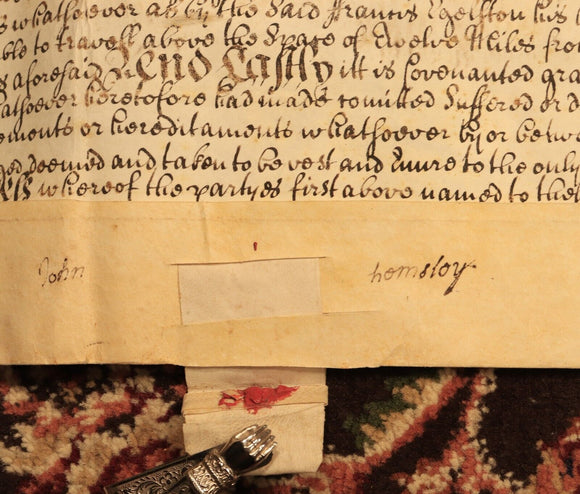 whatsoever as by the said Francis Egelston his
ble to travell above the space of Twelve Miles from
aforesaid And Lastly itt is Covenanted gra
atsoever heretofore had made comitted Suffered or d
ements or hereditaments whatsoever by or betwe
ged deemed and taken to be vest and Enure to the only
whereof the partyes first above named to the
John hemsley